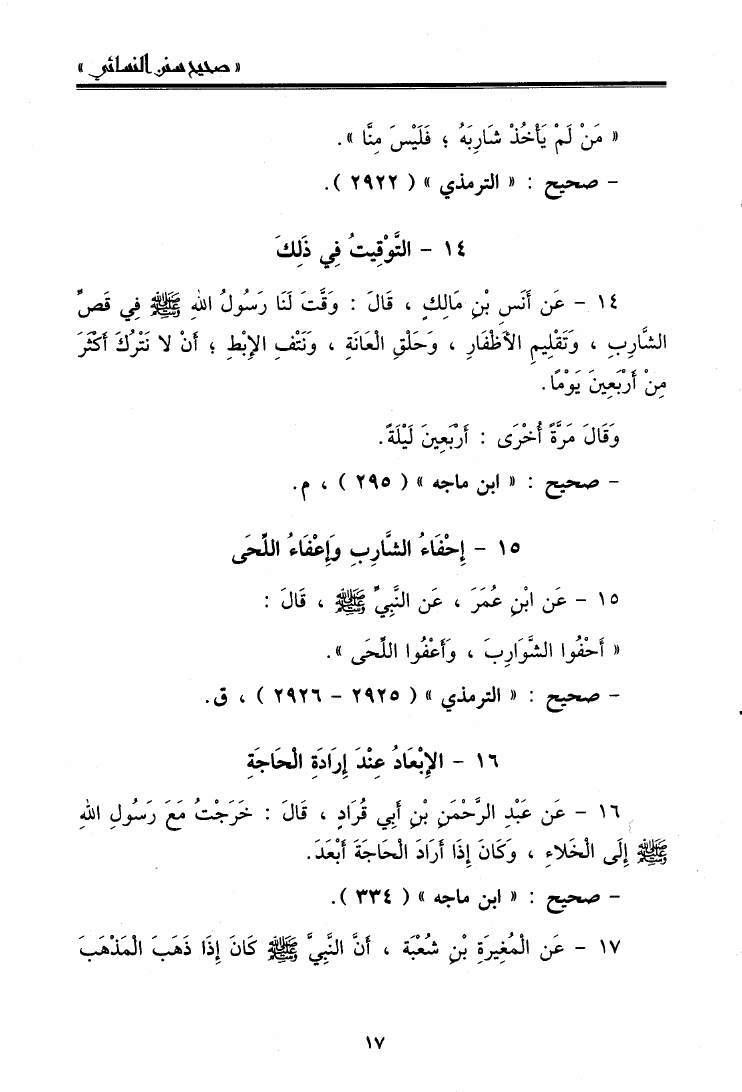 « صحيح سنن النسائي »
« مَنْ لَمْ يَأْخُذْ شَارِبَهُ ؛ فَلَيْسَ مِنَّا ».
– صحيح : « الترمذي » ( ٢٩٢٢ ).
١٤ – التَّوْقِيتُ فِي ذَلِكَ
١٤ – عَن أَنَسِ بْنِ مَالِكٍ ، قَالَ : وَقَّتَ لَنَا رَسُولُ اللهِ ﷺ فِي قَصِّ
الشَّارِبِ ، وَتَقْلِيمِ الأَظْفَارِ ، وَحَلْقِ الْعَانَةِ ، وَنَتْفِ الإِبْطِ ؛ أَنْ لا نَتْرُكَ أَكْثَرَ
مِنْ أَرْبَعِينَ يَوْمًا.
وَقَالَ مَرَّةً أُخْرَى : أَرْبَعِينَ لَيْلَةً.
– صحيح : « ابن ماجه » ( ٢٩٥ ) ، م.
١٥ – إِحْفَاءُ الشَّارِبِ وَإِعْفَاءُ اللِّحَى
١٥ – عَن ابْنِ عُمَرَ ، عَن النَّبِيِّ ﷺ ، قَالَ :
« أَحْفُوا الشَّوَارِبَ ، وَأَعْفُوا اللِّحَى ».
– صحيح : « الترمذي » ( ٢٩٢٥ – ٢٩٢٦ ) ، ق.
١٦ – الإِبْعَادُ عِنْدَ إِرَادَةِ الْحَاجَةِ
١٦ – عَن عَبْدِ الرَّحْمَنِ بْنِ أَبِي قُرَادٍ ، قَالَ : خَرَجْتُ مَعَ رَسُولِ اللهِ
ﷺ إِلَى الْخَلاءِ ، وَكَانَ إِذَا أَرَادَ الْحَاجَةَ أَبْعَدَ.
– صحيح : « ابن ماجه » ( ٣٣٤ ).
١٧ – عَن الْمُغِيرَةِ بْنِ شُعْبَةَ ، أَنَّ النَّبِيَّ ﷺ كَانَ إِذَا ذَهَبَ الْمَذْهَبَ
١٧